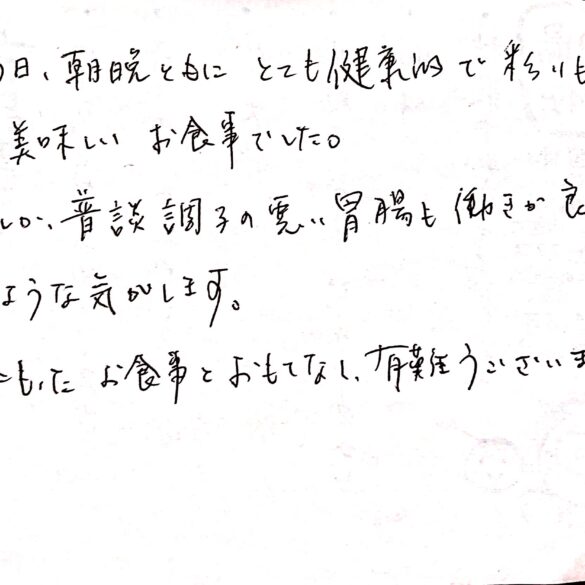 日、朝晩ともに とても健康的で 彩りも
美味しい お食事でした。
普談調子の悪い胃腸も働きが良
ような気がします。
こもった お食事とおもてなし、有難うございま